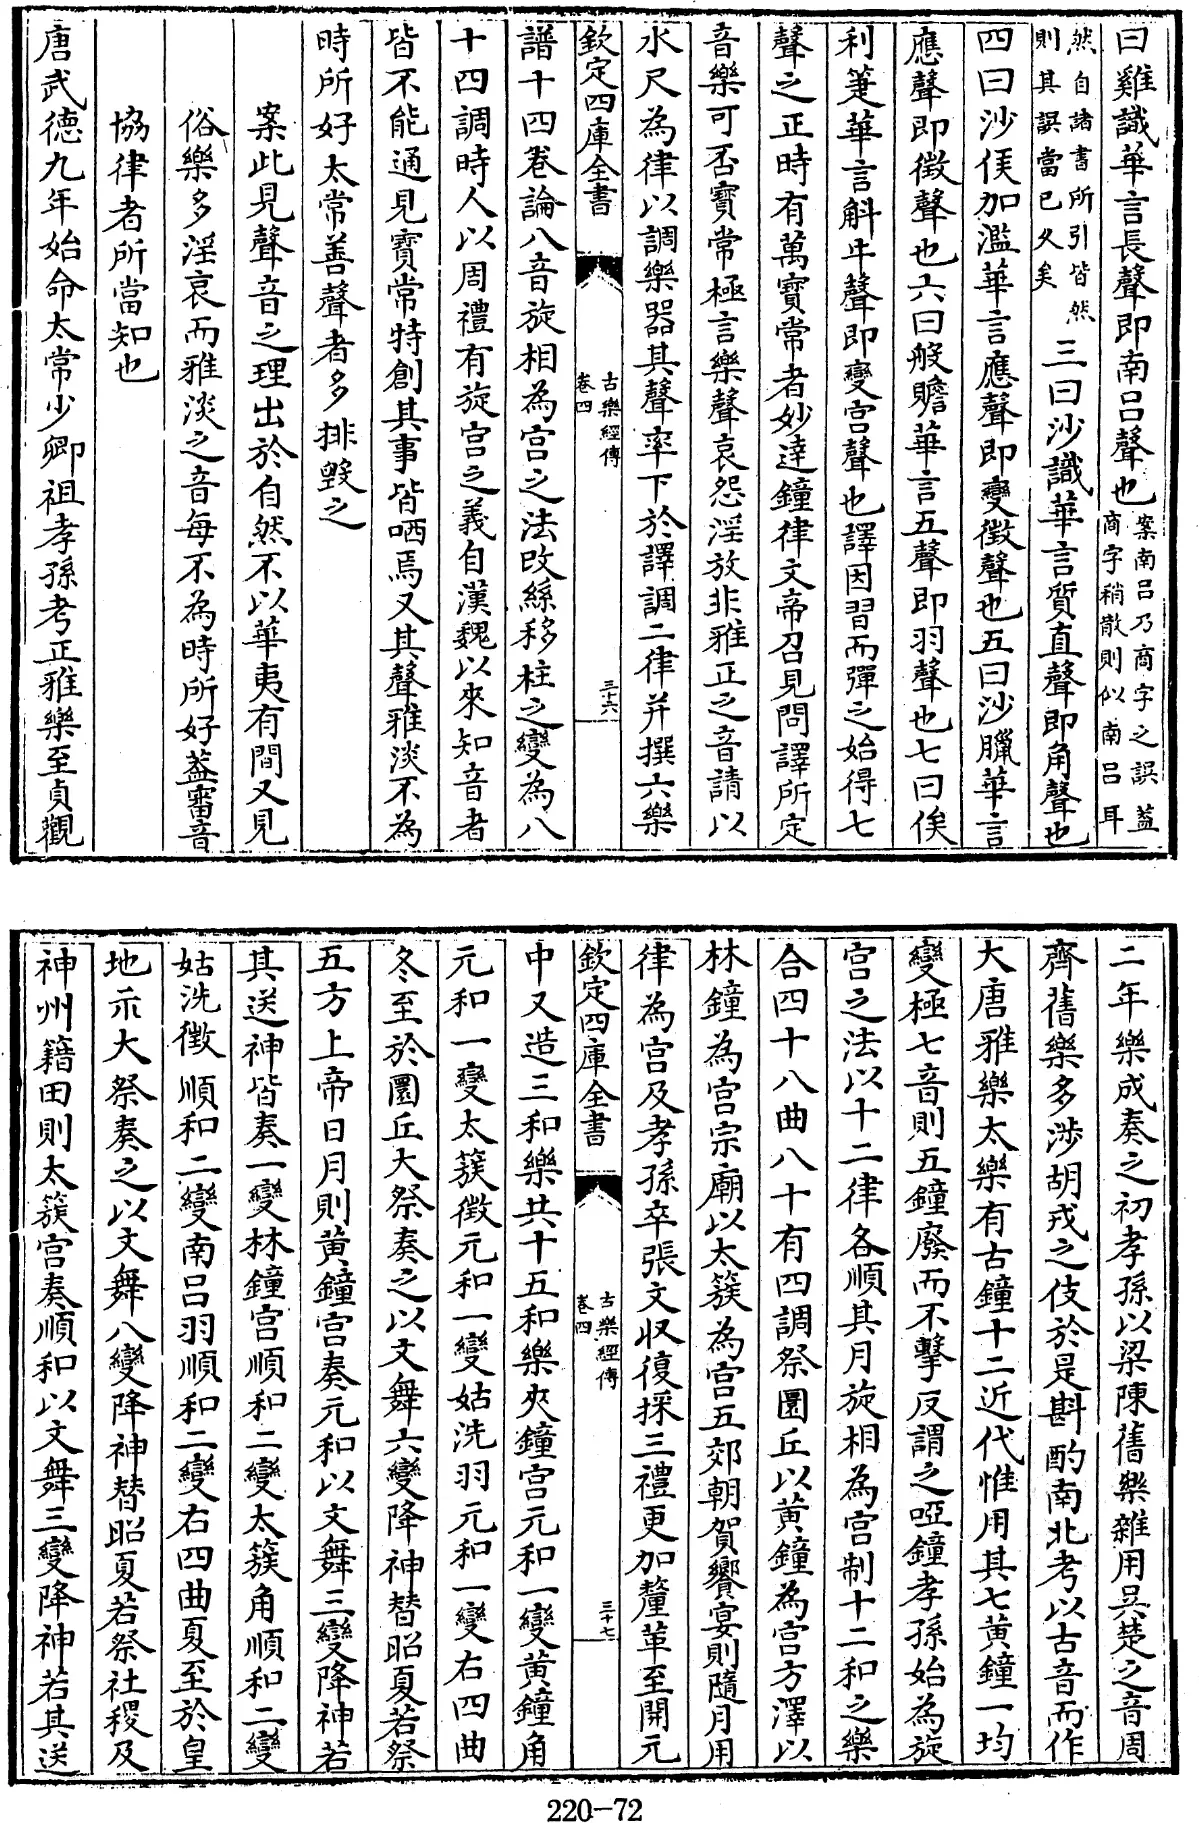 曰雞識華言長聲即南呂聲也案南呂乃商字之誤葢
商字稍散則似南呂耳
然自諸書所引皆然
則其誤當已久矣
三曰沙識華言質直聲即角聲也
四曰沙侯加濫華言應聲即變徴聲也五曰沙臘華言
應聲即徴聲也六曰般贍華言五聲即羽聲也七曰俟
利箑華言斛牛聲即變宫聲也譯因習而彈之始得七
聲之正時有萬寳常者妙達鐘律文帝召見問譯所定
音樂可否寳常極言樂聲哀怨淫放非雅正之音請以
水尺為律以調樂器其聲率下於譯調二律并撰六樂
欽定四庫全書
古樂經傳
卷四
三十六
譜十四卷論八音旋相為宫之法改絲移柱之變為八
十四調時人以周禮有旋宫之義自漢魏以來知音者
皆不能通見寳常特創其事皆哂焉又其聲雅淡不為
時所好太常善聲者多排毁之
案此見聲音之理出於自然不以華夷有間又見
俗樂多淫哀而雅淡之音每不為時所好葢審音
協律者所當知也
唐武德九年始命太常少卿祖孝孫考正雅樂至貞觀
二年樂成奏之初孝孫以梁陳舊樂雜用吳楚之音周
齊舊樂多涉胡戎之伎於是斟酌南北考以古音而作
大唐雅樂太樂有古鐘十二近代惟用其七黄鐘一均
變極七音則五鐘廢而不擊反謂之啞鐘孝孫始為旋
宫之法以十二律各順其月旋相為宫制十二和之樂
合四十八曲八十有四調祭圜丘以黄鐘為宫方澤以
林鐘為宫宗廟以太簇為宫五郊朝賀饗宴則隨月用
律為宫及孝孫卒張文收復採三禮更加釐革至開元
欽定四庫全書
古樂經傳
卷四
三十七
中又造三和樂共十五和樂夾鐘宫元和一變黄鐘角
元和一變太簇徴元和一變姑洗羽元和一變右四曲
冬至於圜丘大祭奏之以文舞六變降神替昭夏若祭
五方上帝日月則黄鐘宫奏元和以文舞三變降神若
其送神皆奏一變林鐘宫順和二變太簇角順和二變
姑洗徴順和二變南呂羽順和二變右四曲夏至於皇
地示大祭奏之以文舞八變降神替昭夏若祭社稷及
神州籍田則太簇宫奏順和以文舞三變降神若其送
220-72